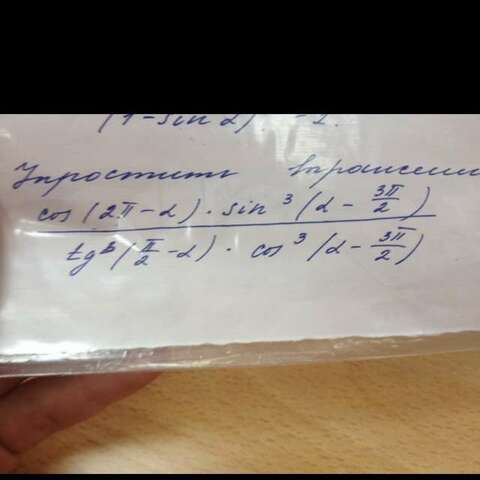 (1-sin α) -1.
Упростить выражени
cos(2π-α)·sin³(α-3π/2)
tg³(π/2-α)·cos³(α-3π/2)